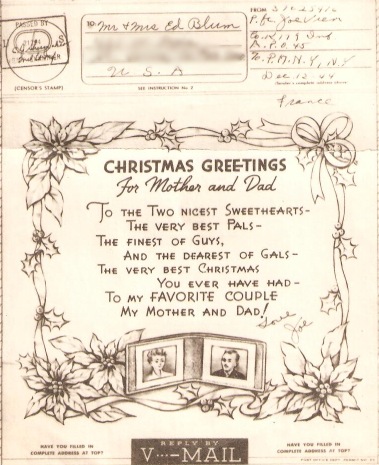 PASSED BY
(CENSOR'S STAMP)
TO: Mr + Mrs Ed Blum
U. S. A
SEE INSTRUCTION No. 2
FROM
Pfc Joe
A.P.O. 45
P.M. N.Y., N.Y
Dec 12 44
France
CHRISTMAS GREETINGS
For Mother and Dad
To the Two nicest Sweethearts-
The very best Pals-
The finest of Guys,
And the dearest of Gals-
The very best Christmas
You ever have had-
To my FAVORITE COUPLE
My Mother and Dad!
Love
Joe
HAVE YOU FILLED IN
COMPLETE ADDRESS AT TOP?
REPLY BY
V···-MAIL
HAVE YOU FILLED IN
COMPLETE ADDRESS AT TOP?